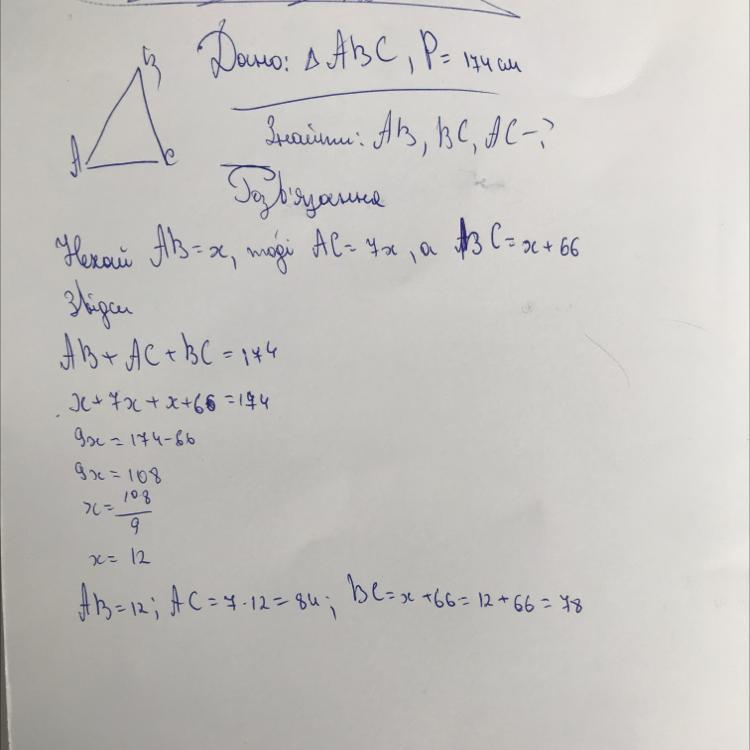 Дано: △ ABC, P= 174 см
B
A
C
Знайти: AB, BC, AC-?
Розв'язання
Нехай AB=x, тоді AC= 7x, а BC= x+66
Звідси
AB+ AC+BC =174
x+7x+x+66 =174
9x=174-66
9x=108
x= 108/9
x= 12
AB=12; AC=7·12=84; BC=x+66=12+66=78